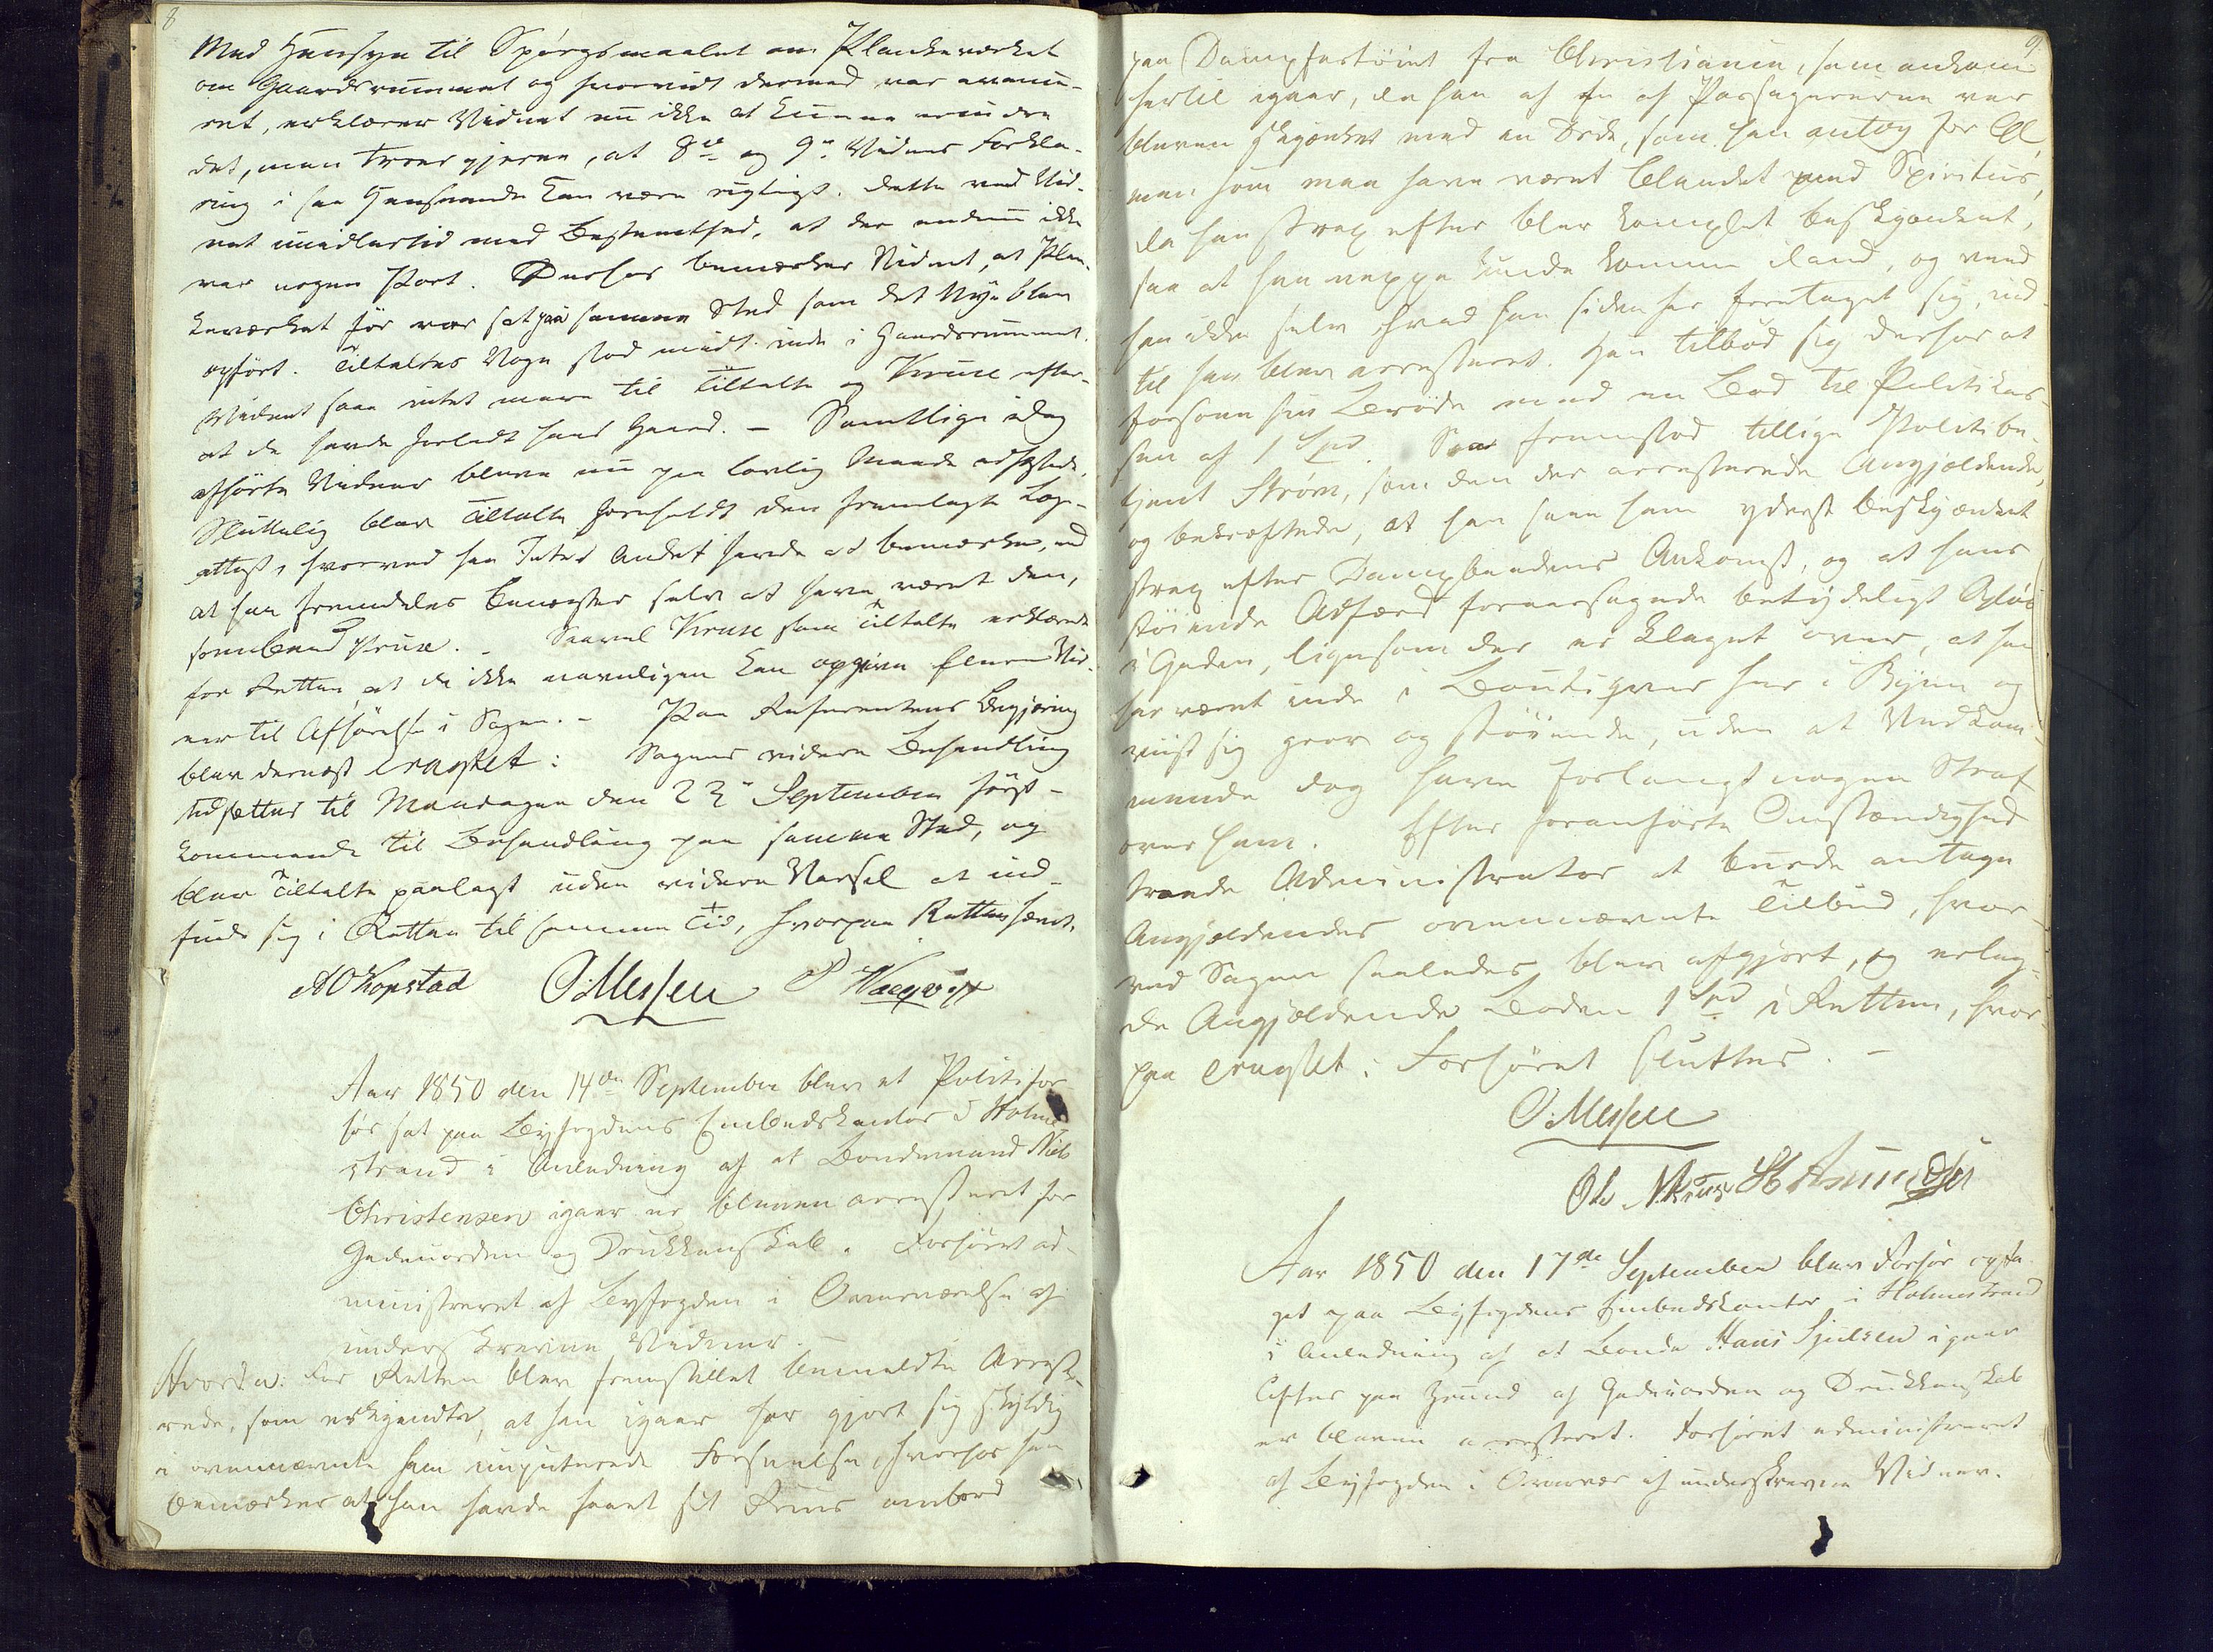 8
Med Hensyn til Spørgsmaalet om Plankeværket
om Gaardsrummet og hvorvidt dermed var avance-
ret, erklærer Vidnet nu ikke at kunne erindre
det, men troer gjerne, at 8de og 9de Vidnes Forkla-
ring i saa Henseende kan være rigtigt. Dette ved Vid-
net imidlertid med Bestemthed, at der endnu ikke
var nogen Port. Derhos bemærker Vidnet, at Plan-
keværket før var sat paa samme Sted som det Nye blev
opført. Tiltaltes Vogn stod midt inde i Gaardsrummet.
Vidnet saae intet mere til Tiltalte og Kruse efter-
at de havde forladt hans Gaard. – Samtlige idag
afhørte Vidner bleve nu paa lovlig Maade edfæstede.
Sluttelig blev Tiltalte foreholdt den fremlagte Læge-
attest, hvorved han Intet Andet havde at bemærke, end
at han fremdeles benægter selv at have været den,
som bandt Kruse. – Saavel Kruse som Tiltalte erklærede
for Retten, at de ikke navnligen kan opgive flere Vid-
ner til Afhørelse i Sagen. – Paa Referentens Begjæring
blev dernæst eragtet: Sagens videre Behandling
udsættes til Mandagen den 23de September først-
kommende til Behandling paa samme Sted, og
blev Tiltalte paalagt uden videre Varsel at ind-
finde sig i Retten til samme Tid, hvorpaa Retten hævt.
AO Kopstad O. Messen P
Aar 1850 den 14de September blev et Politifor-
hør sat paa Byfogdens Embedskontor i Holme-
strand i Anledning af at Bondemand Niels
Christensen igaar er bleven arresteret for
Gadeuorden og Drukkenskab. Forhøret ad-
ministreret af Byfogden i Overværelse af
underskrevne Vidner. –
Hvorda: For Retten blev fremstillet bemeldte Areste-
rede, som erkjendte, at han igaar har gjort sig skyldig
i ovennævnte ham imputerede Forseelse, hvorhos han
bemærker at han havde faaet sit Ruus ombord
9.
paa Dampfartøiet fra Christiania, som ankom
hertil igaar, da han af en af Passagererne var
bleven skjænket med en Drik, som han antog for Øl,
men som maa have været blandet med Spiritus,
da han strax efter blev komplet beskjænket,
saa at han neppe kunde komme iland, og veed
han ikke selv hvad han siden har foretaget sig, ind-
til han blev arresteret. Han tilbød sig derhos at
forsone sin Brøde med en Bod til Politikas-
sen af 1 Spd. Saa fremstod tillige Politibe-
tjent Strøm, som den der arresterede Angjældende,
og bekræftede, at han saae ham yderst beskjænket
strax efter Dampbaadens Ankomst, og at hans
støiende Adfærd foraarsagede betydeligt Opløb
i Gaden, ligesom der er klaget over, at han
har været inde i Boutiqver her i Byen og
viist sig grov og støiende, uden at Vedkom-
mende dog have forlangt nogen Straf
over ham. Efter foranførte Omstændighed
troede Administrator at burde antage
Angjældendes ovennævnte Tilbud, hvor-
ved Sagen saaledes blev afgjort, og erlag-
de Angjældende Boden 1 Spd i Retten, hvor-
paa eragtet: Forhøret sluttes. –
O. Messen
Ole
Aar 1850 den 17de September blev Forhør opta-
get paa Byfogdens Embedskontor i Holmestrand
i Anledning af at Bonde Hans Sjulsen igaar
Aftes paa Grund af Gadeuorden og Drukkenskab
er bleven arresteret. Forhøret administreret
af Byfogden i Overvær af underskrevne Vidner.